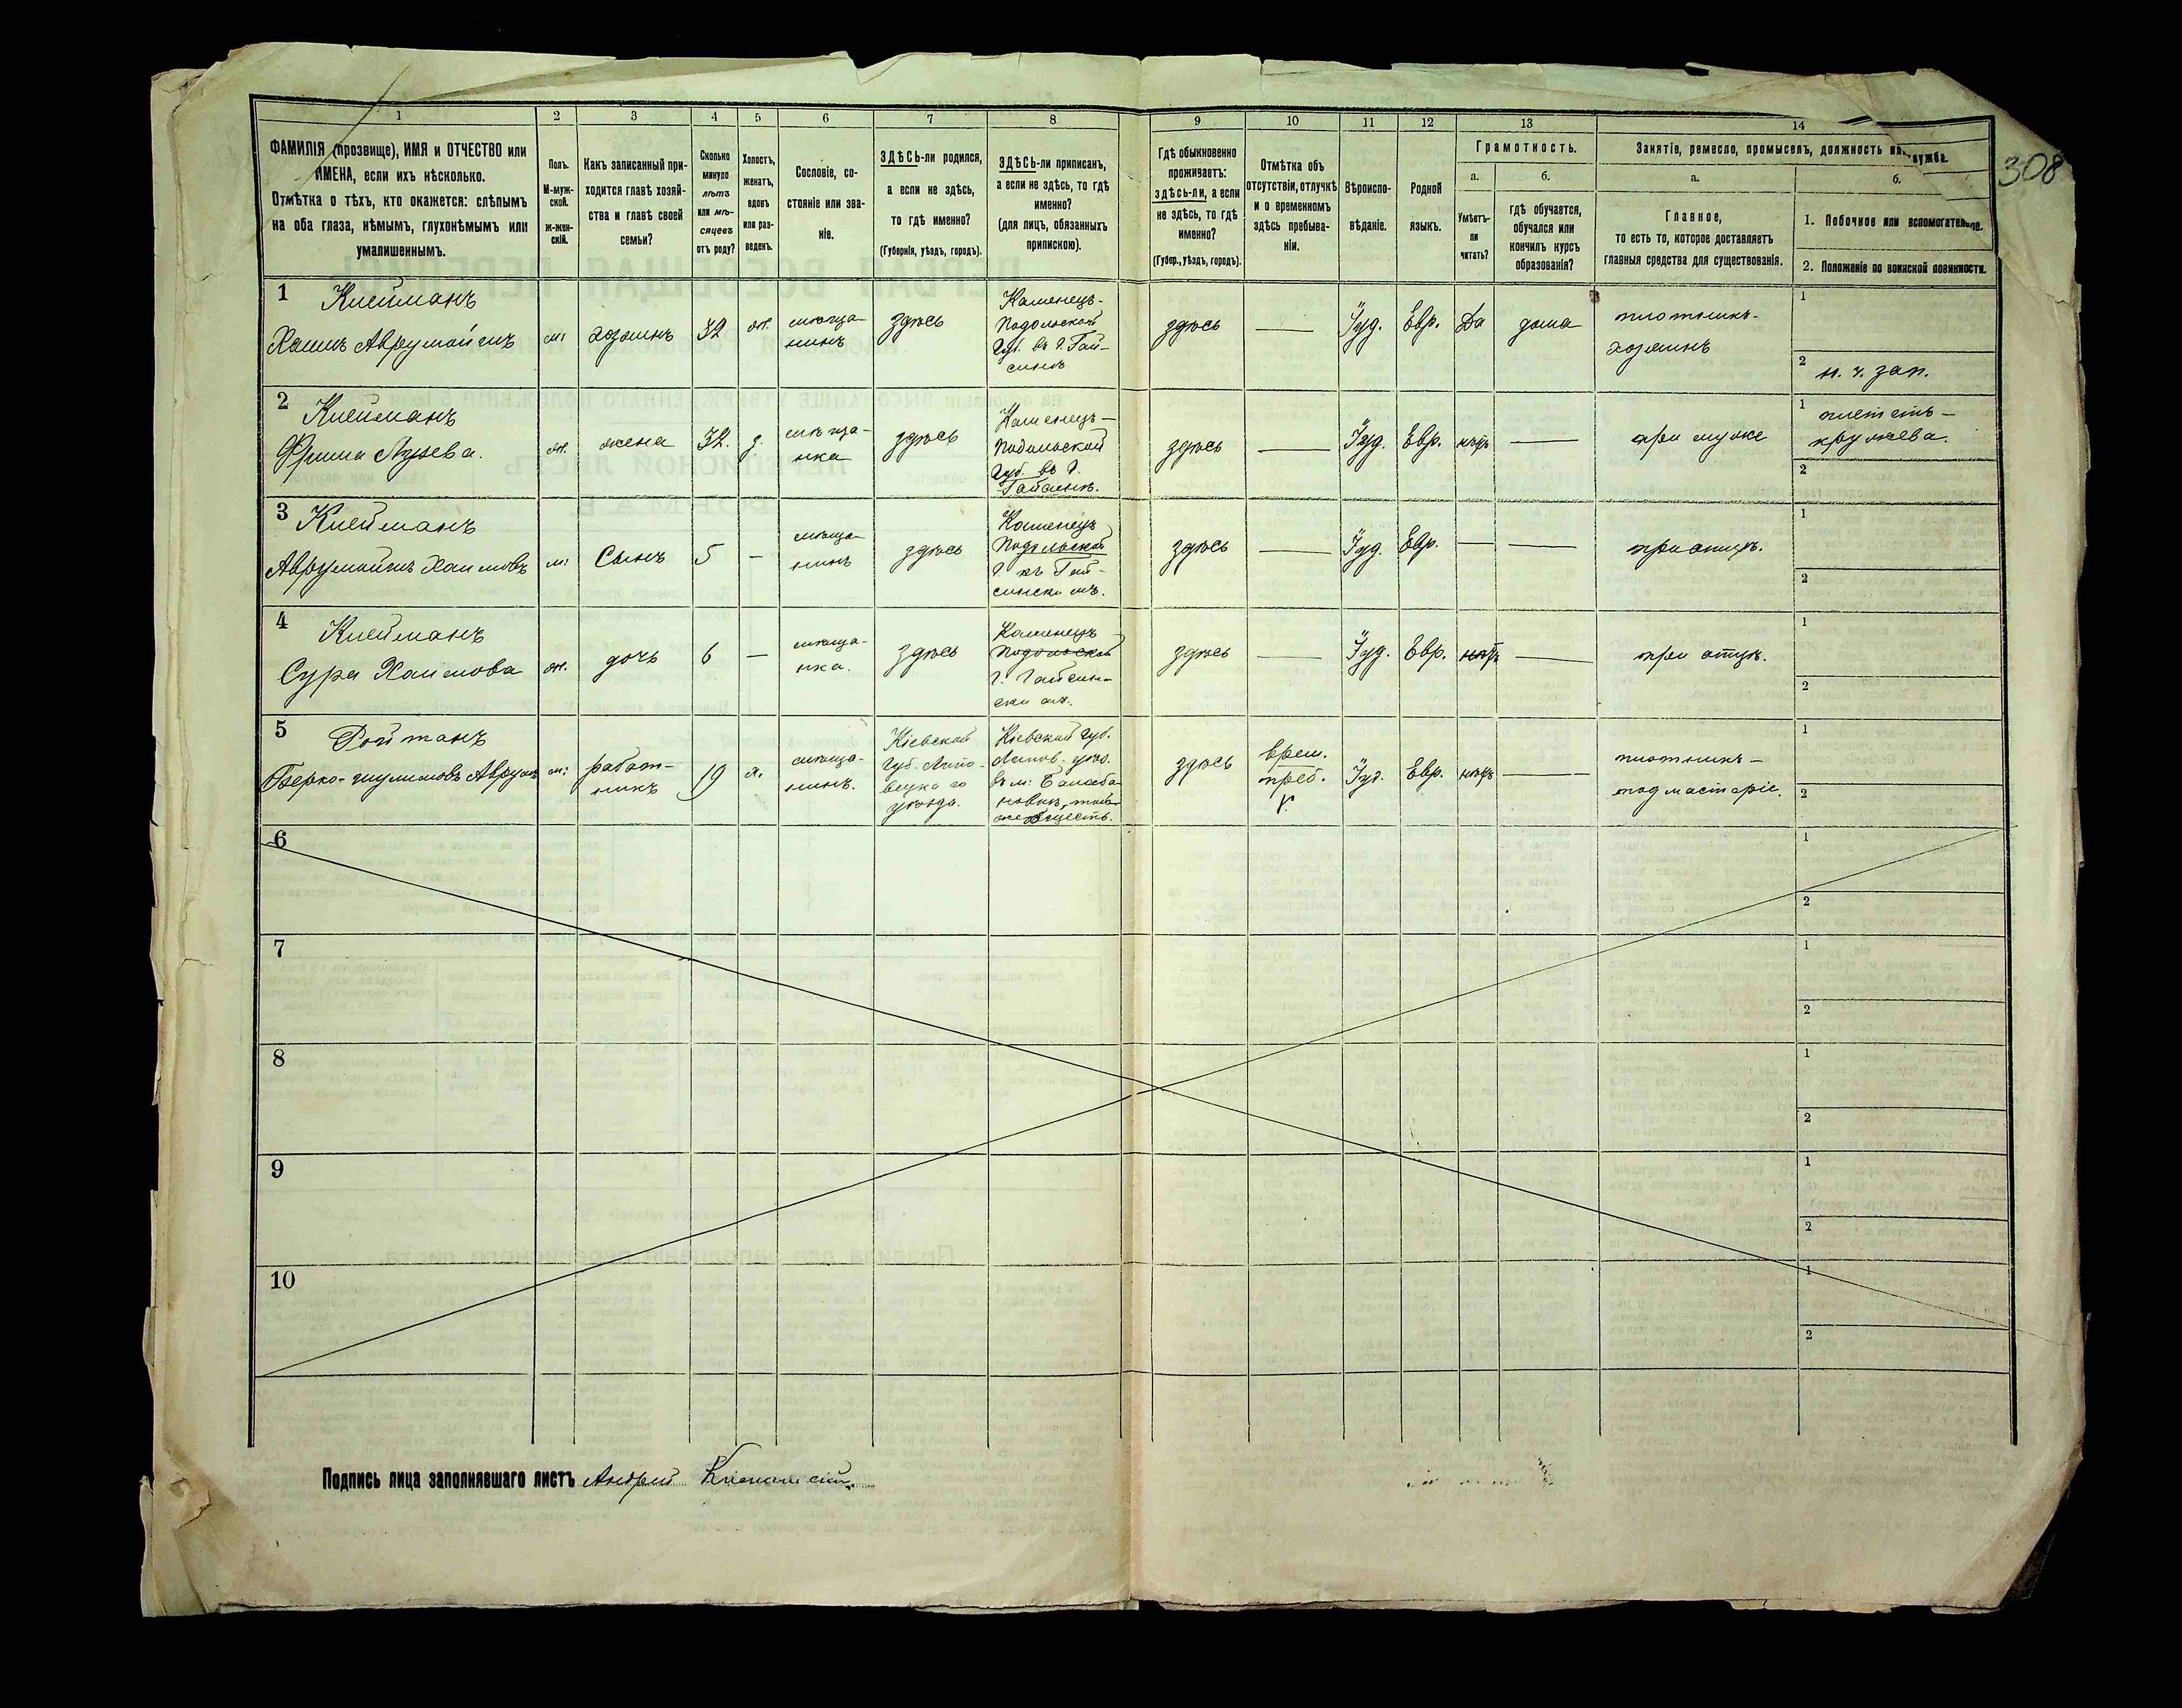 308
1 2 3 4 5 6 7 8 9 10 11 12 13 14
ФАМИЛІЯ (прозвище), ИМЯ и ОТЧЕСТВО или
ИМЕНА, если ихъ нѣсколько.
Отмѣтка о тѣхъ, кто окажется: слѣпымъ
на оба глаза, нѣмымъ, глухонѣмымъ или
умалишеннымъ.
Полъ.
М-муж-
ской.
ж-жен-
скій.
Какъ записанный при-
ходится главѣ хозяй-
ства и главѣ своей
семьи?
Сколько
минуло
лѣтъ
или мѣ-
сяцевъ
отъ роду?
Холостъ,
женатъ,
вдовъ
или раз-
веденъ.
Сословіе, со-
стояніе или зва-
ніе.
ЗДѢСЬ-ли родился,
а если не здѣсь,
то гдѣ именно?
(Губернія, уѣздъ, городъ).
ЗДѢСЬ-ли приписанъ,
а если не здѣсь, то гдѣ
именно?
(для лицъ, обязанныхъ
припискою).
Гдѣ обыкновенно
проживаетъ:
здѣсь-ли, а если
не здѣсь, то гдѣ
именно?
(Губер., уѣздъ, городъ).
Отмѣтка объ
отсутствіи, отлучкѣ
и о временномъ
здѣсь пребыва-
ніи.
Вѣроиспо-
вѣданіе.
Родной
языкъ.
Грамотность.
а.
Умѣетъ-
ли
читать?
б.
гдѣ обучается,
обучался или
кончилъ курсъ
образованія?
Занятіе, ремесло, промыселъ, должность или служба.
а.
Главное,
то есть то, которое доставляетъ
главныя средства для существованія.
б.
1. Побочное или вспомогательное.
2. Положеніе по воинской повинности.
1
Клейманъ
Хаимъ Аврумовичъ
м:
хозяинъ
32
ж.
мѣща-
нинъ
здѣсь
Каменецъ-
Подольской
Губ. въ г. Гай-
синѣ
здѣсь
Іуд.
Евр.
Да
дома
плотникъ-
хозяинъ
1
2 н. ч. зап.
2
Клейманъ
Фрима
ж.
жена
32.
з.
мѣща-
нка
здѣсь
Каменецъ-
Подольской
Губ. въ г.
Гайсинѣ.
здѣсь
Іуд.
Евр.
нѣтъ
при мужѣ
1 плететъ-
кружева.
2
3
Клейманъ
Хаимовъ
м:
Сынъ
5
мѣща-
нинъ
здѣсь
Каменецъ
Подольской
здѣсь
Іуд.
Евр.
при отцѣ.
1
2
4
Клейманъ
Сура Хаимова
ж.
дочь
6
мѣща-
нка.
здѣсь
Каменецъ
Подольской
здѣсь
Іуд.
Евр.
нѣтъ
при отцѣ.
1
2
5
Ройтманъ
м:
работ-
никъ
19
х.
мѣща-
нинъ.
Кіевской
Губ. Липо-
вецкаго
уѣзда.
Кіевской Губ.
Липов. уѣзд.
въ м: Балаба-
новкѣ,
здѣсь
врем.
преб.
Іуд.
Евр.
нѣтъ
плотникъ-
подмастеріе.
1
2
6
1
2
7
1
2
8
1
2
9
1
2
10
1
2
Подпись лица заполнявшаго листъ Андрей